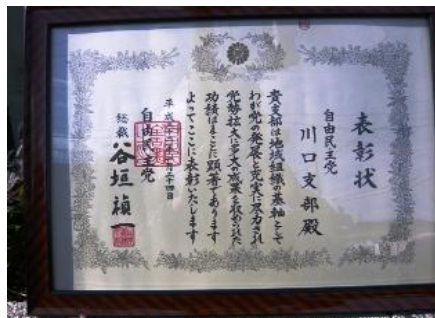 表彰状
自由民主党
川口支部殿
貴支部は地域組織の基軸として
わが党の発展と充実に尽力され
党勢拡大に多大の成果を収められた
功績はまことに顕著であります
よってここに表彰いたします
自由民主党
総裁 谷垣禎一